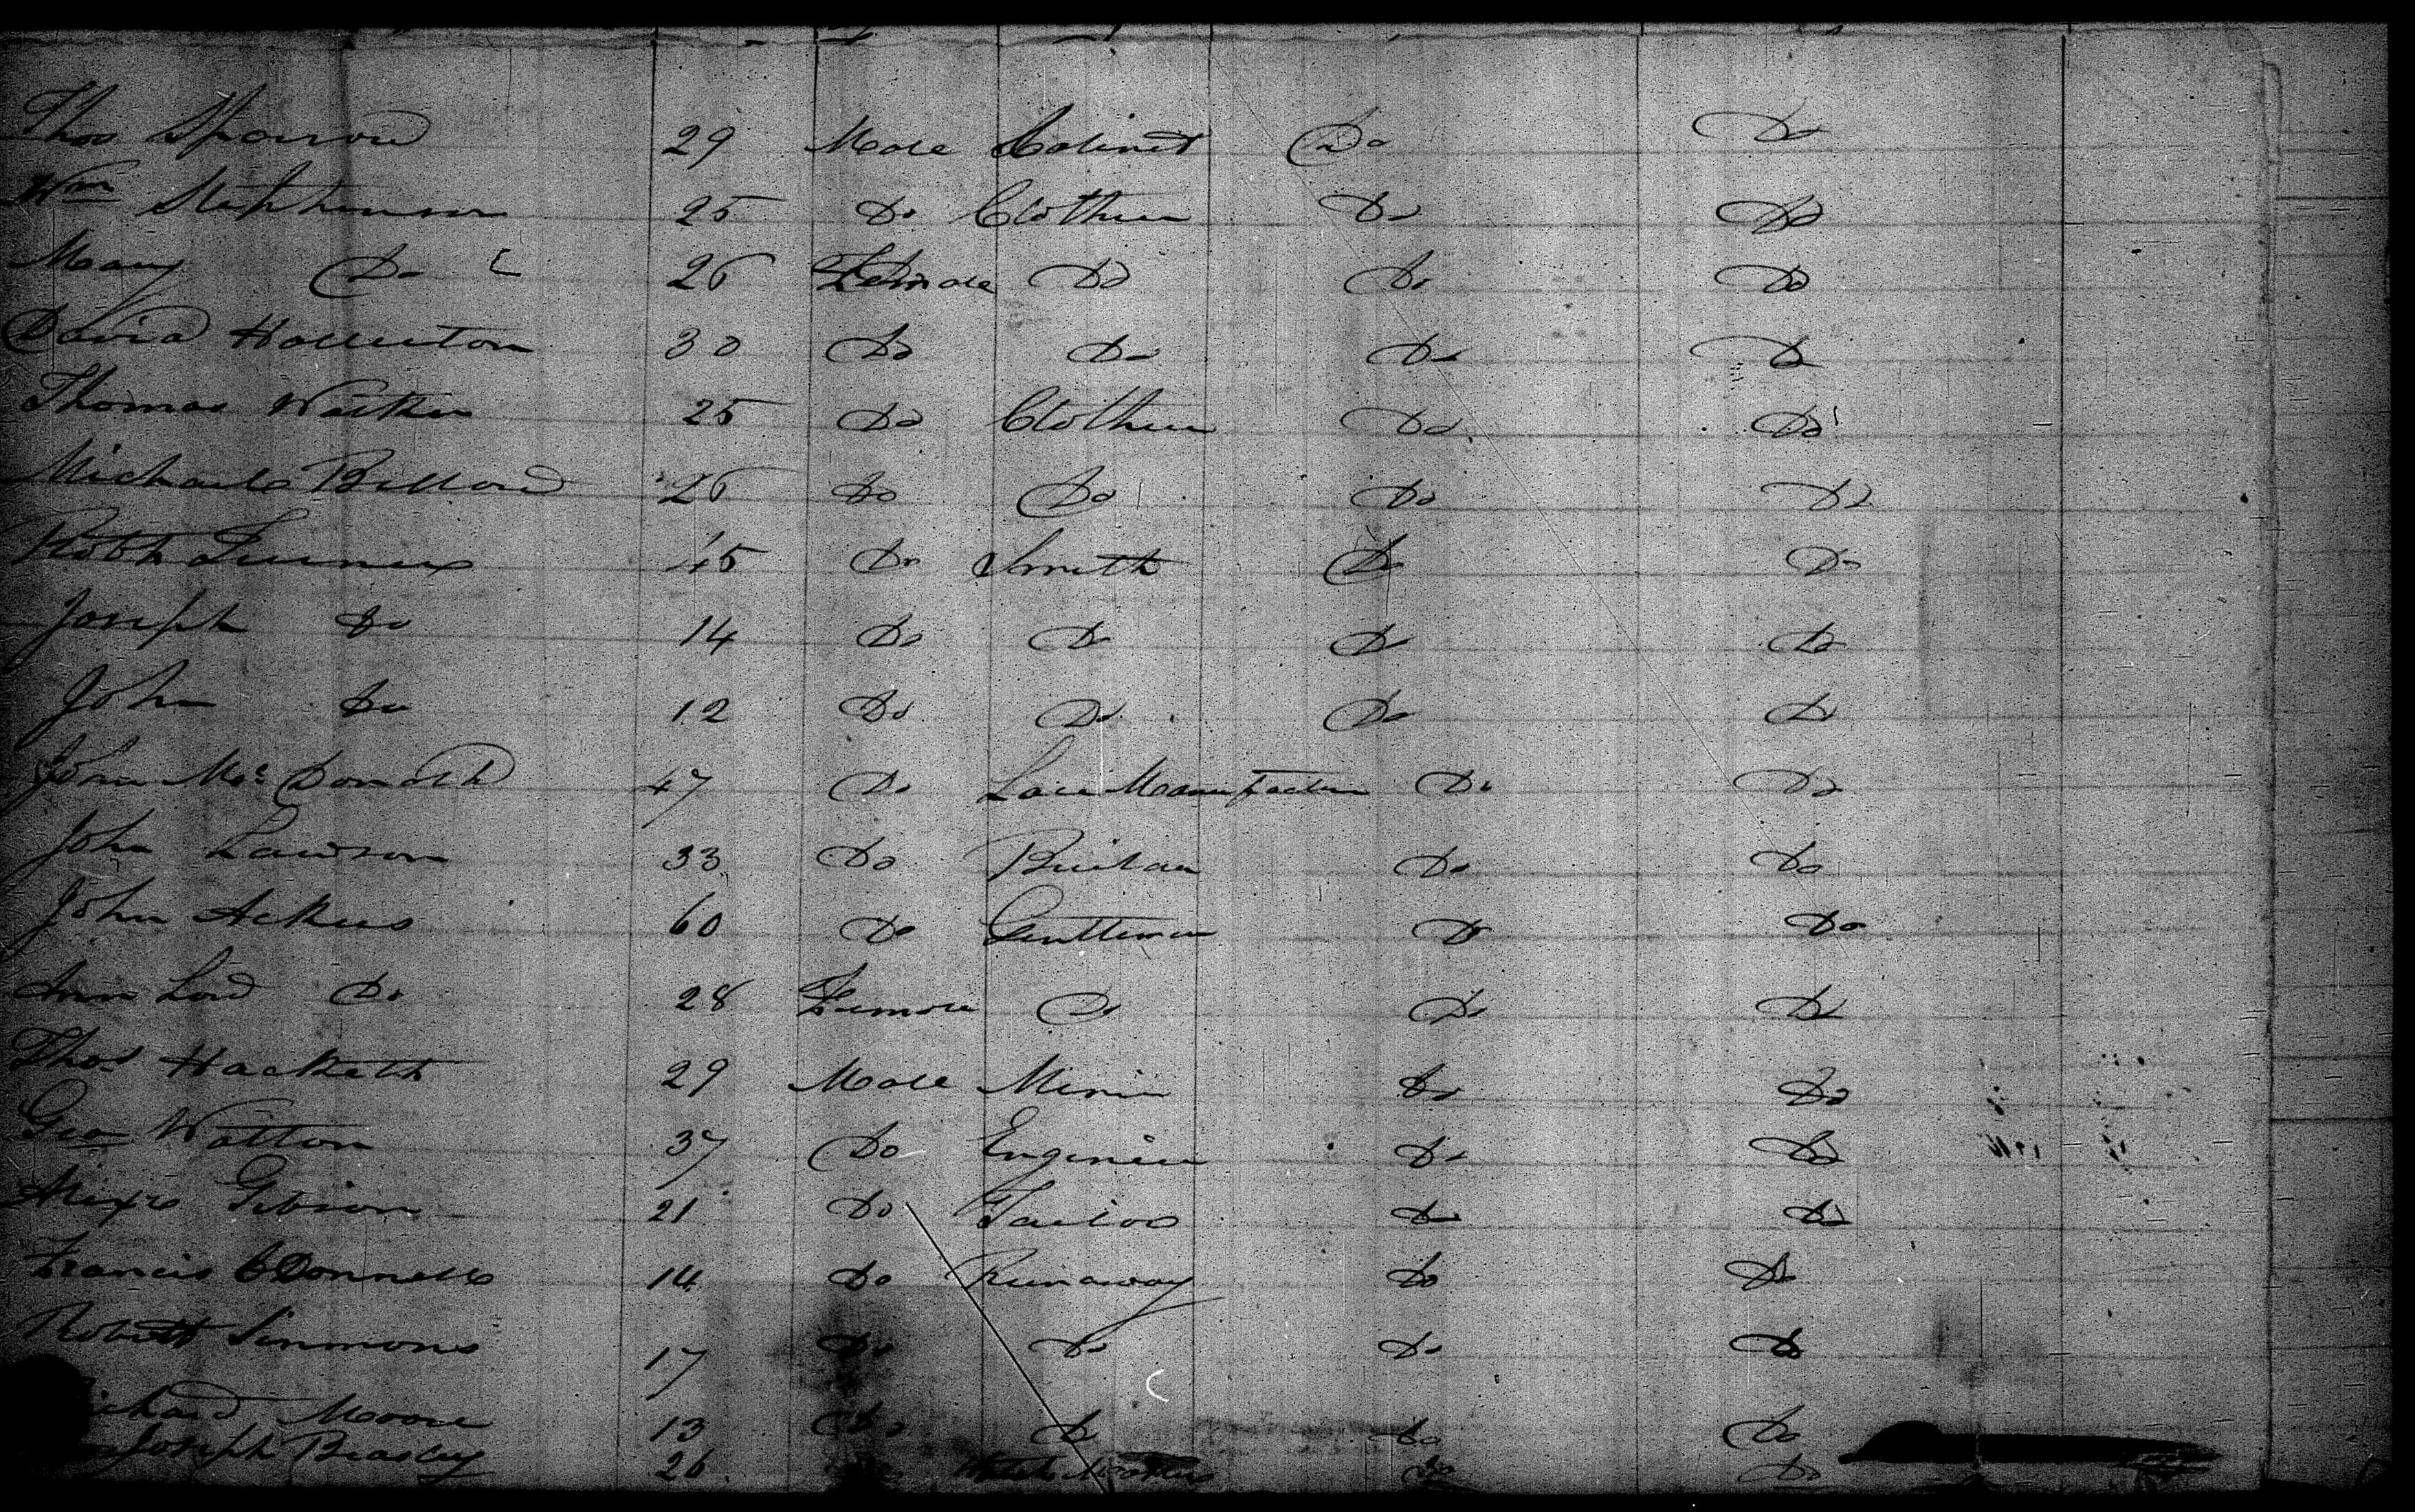 Thos Sparrow 29 Male Cabinet Do Do
Wm Stephenson 25 Do Clothier Do Do
Mary Do 26 Female Do Do Do
David Hollerton 30 Do Do Do Do
Thomas Walker 25 Do Clothier Do Do
Michael Do Do Do Do
Robt 45 Do Smith Do Do
Joseph Do 14 Do Do Do Do
John Do 12 Do Do Do Do
John McDonald 47 Do Lace Manufacturer Do Do
John Lawson 33 Do Do Do
John Ackers 60 Do Gentleman Do Do
Ann Lord Do 28 Female Do Do Do
Thos Hackett 29 Male Miner Do Do
Geo Watton 37 Do Engineer Do Do
Gibson 21 Do Tailor Do Do
Francis ODonnell 14 Do Runaway Do Do
Robert Simmons 17 Do Do Do Do
Moore 13 Do Do Do Do
Joseph Beasley 26 Do Do